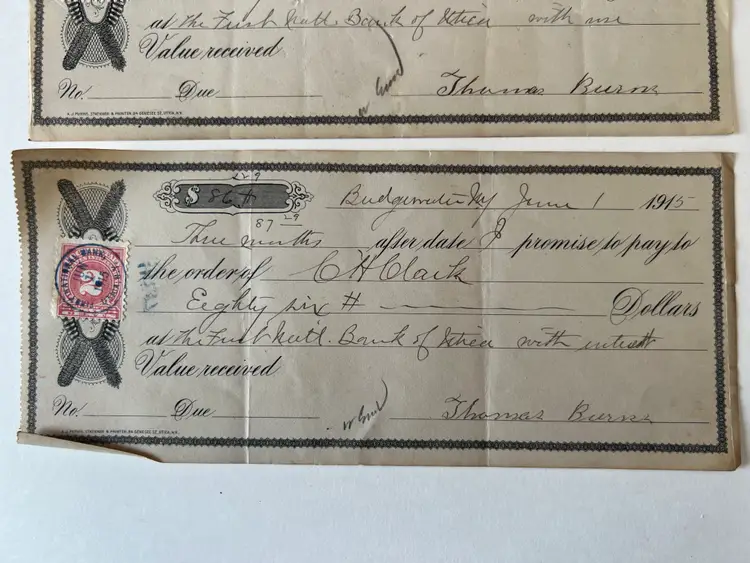 at the First Natl. Bank of Utica with use
Value received
No. Due
Thomas Burns
A.J. PURDIE, STATIONER & PRINTER, 8½ GENESEE ST. UTICA, N.Y.
$ 86
87 29
Bridgewater NY June 1 1915
Three months after date I promise to pay to
the order of C H Clark
Eighty six # Dollars
at the First Natl. Bank of Utica with interest
Value received
No. Due
Thomas Burns